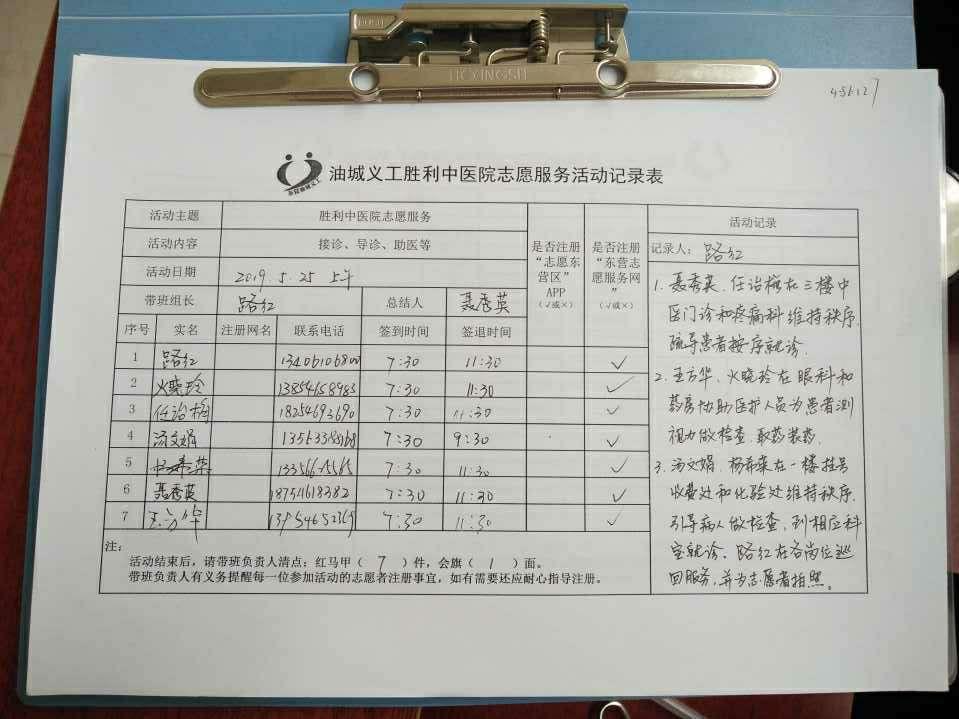 HOXINGSH
油城义工胜利中医院志愿服务活动记录表
活动主题 胜利中医院志愿服务
活动内容 接诊、导诊、助医等
活动日期 2019.5.25 上午
带班组长 路红 总结人 聂秀英
是否注册“志愿东营区”APP（√或×）
是否注册“东营志愿服务网”（√或×）
序号 实名 注册网名 联系电话 签到时间 签退时间
1 路红 13406106800 7:30 11:30 √
2 火晓玲 13854658983 7:30 11:30 √
3 任治梅 18254693690 7:30 11:30 √
4 汤文娟 7:30 9:30 √
5 杨希荣 7:30 11:30 √
6 聂秀英 18754618382 7:30 11:30 √
7 王方华 7:30 11:30 √
注：
活动结束后，请带班负责人清点：红马甲（ 7 ）件，会旗（ 1 ）面。
带班负责人有义务提醒每一位参加活动的志愿者注册事宜，如有需要还应耐心指导注册。
活动记录
记录人：路红
1. 聂秀英、任治梅在三楼中
医门诊和疼痛科维持秩序，
疏导患者按序就诊。
2. 王方华、火晓玲在眼科和
药房协助医护人员为患者测
视力做检查、取药装药。
3. 汤文娟、杨希荣在一楼挂号
收费处和化验处维持秩序，
引导病人做检查，到相应科
室就诊。路红在各岗位巡
回服务，并为志愿者拍照。